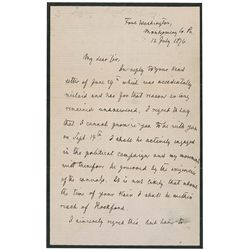 Fort Washington,
Montgomery Co. Pa.
12 July 1876
My dear Sir,
In reply to your kind
letter of June 29th which was accidentally
mislaid and has for that reason so long
remained unanswered, I regret to say
that I cannot promise you to be with you
on Sept. 19th. I shall be actively engaged
in the political campaign and my movements
will therefore be governed by the exigencies
of the canvass. It is not likely that about
the time of your Fair I shall be within
reach of Rockford.
I sincerely regret this, but have to